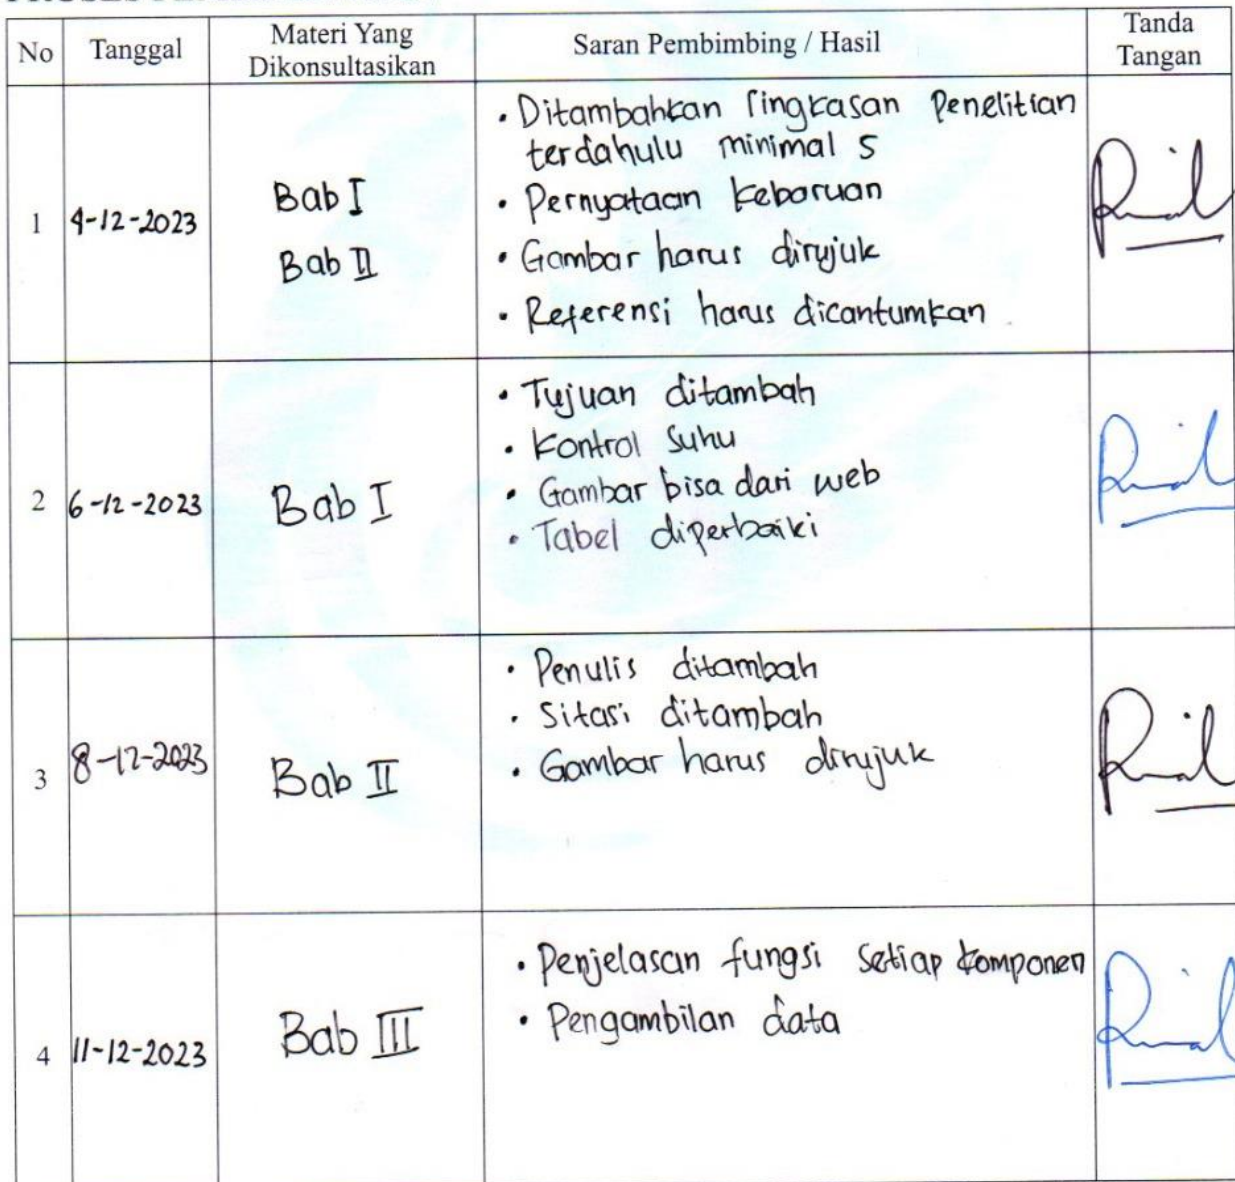 No
Tanggal
Materi Yang
Dikonsultasikan
Saran Pembimbing / Hasil
Tanda
Tangan
1
4-12-2023
Bab I
Bab II
• Ditambahkan ringkasan Penelitian
terdahulu minimal 5
• Pernyataan kebaruan
• Gambar harus dirujuk
• Referensi harus dicantumkan
2
6-12-2023
Bab I
• Tujuan ditambah
• Kontrol Suhu
• Gambar bisa dari web
• Tabel diperbaiki
3
8-12-2023
Bab II
• Penulis ditambah
• Sitasi ditambah
• Gambar harus dirujuk
4
11-12-2023
Bab III
• Penjelasan fungsi setiap komponen
• Pengambilan data